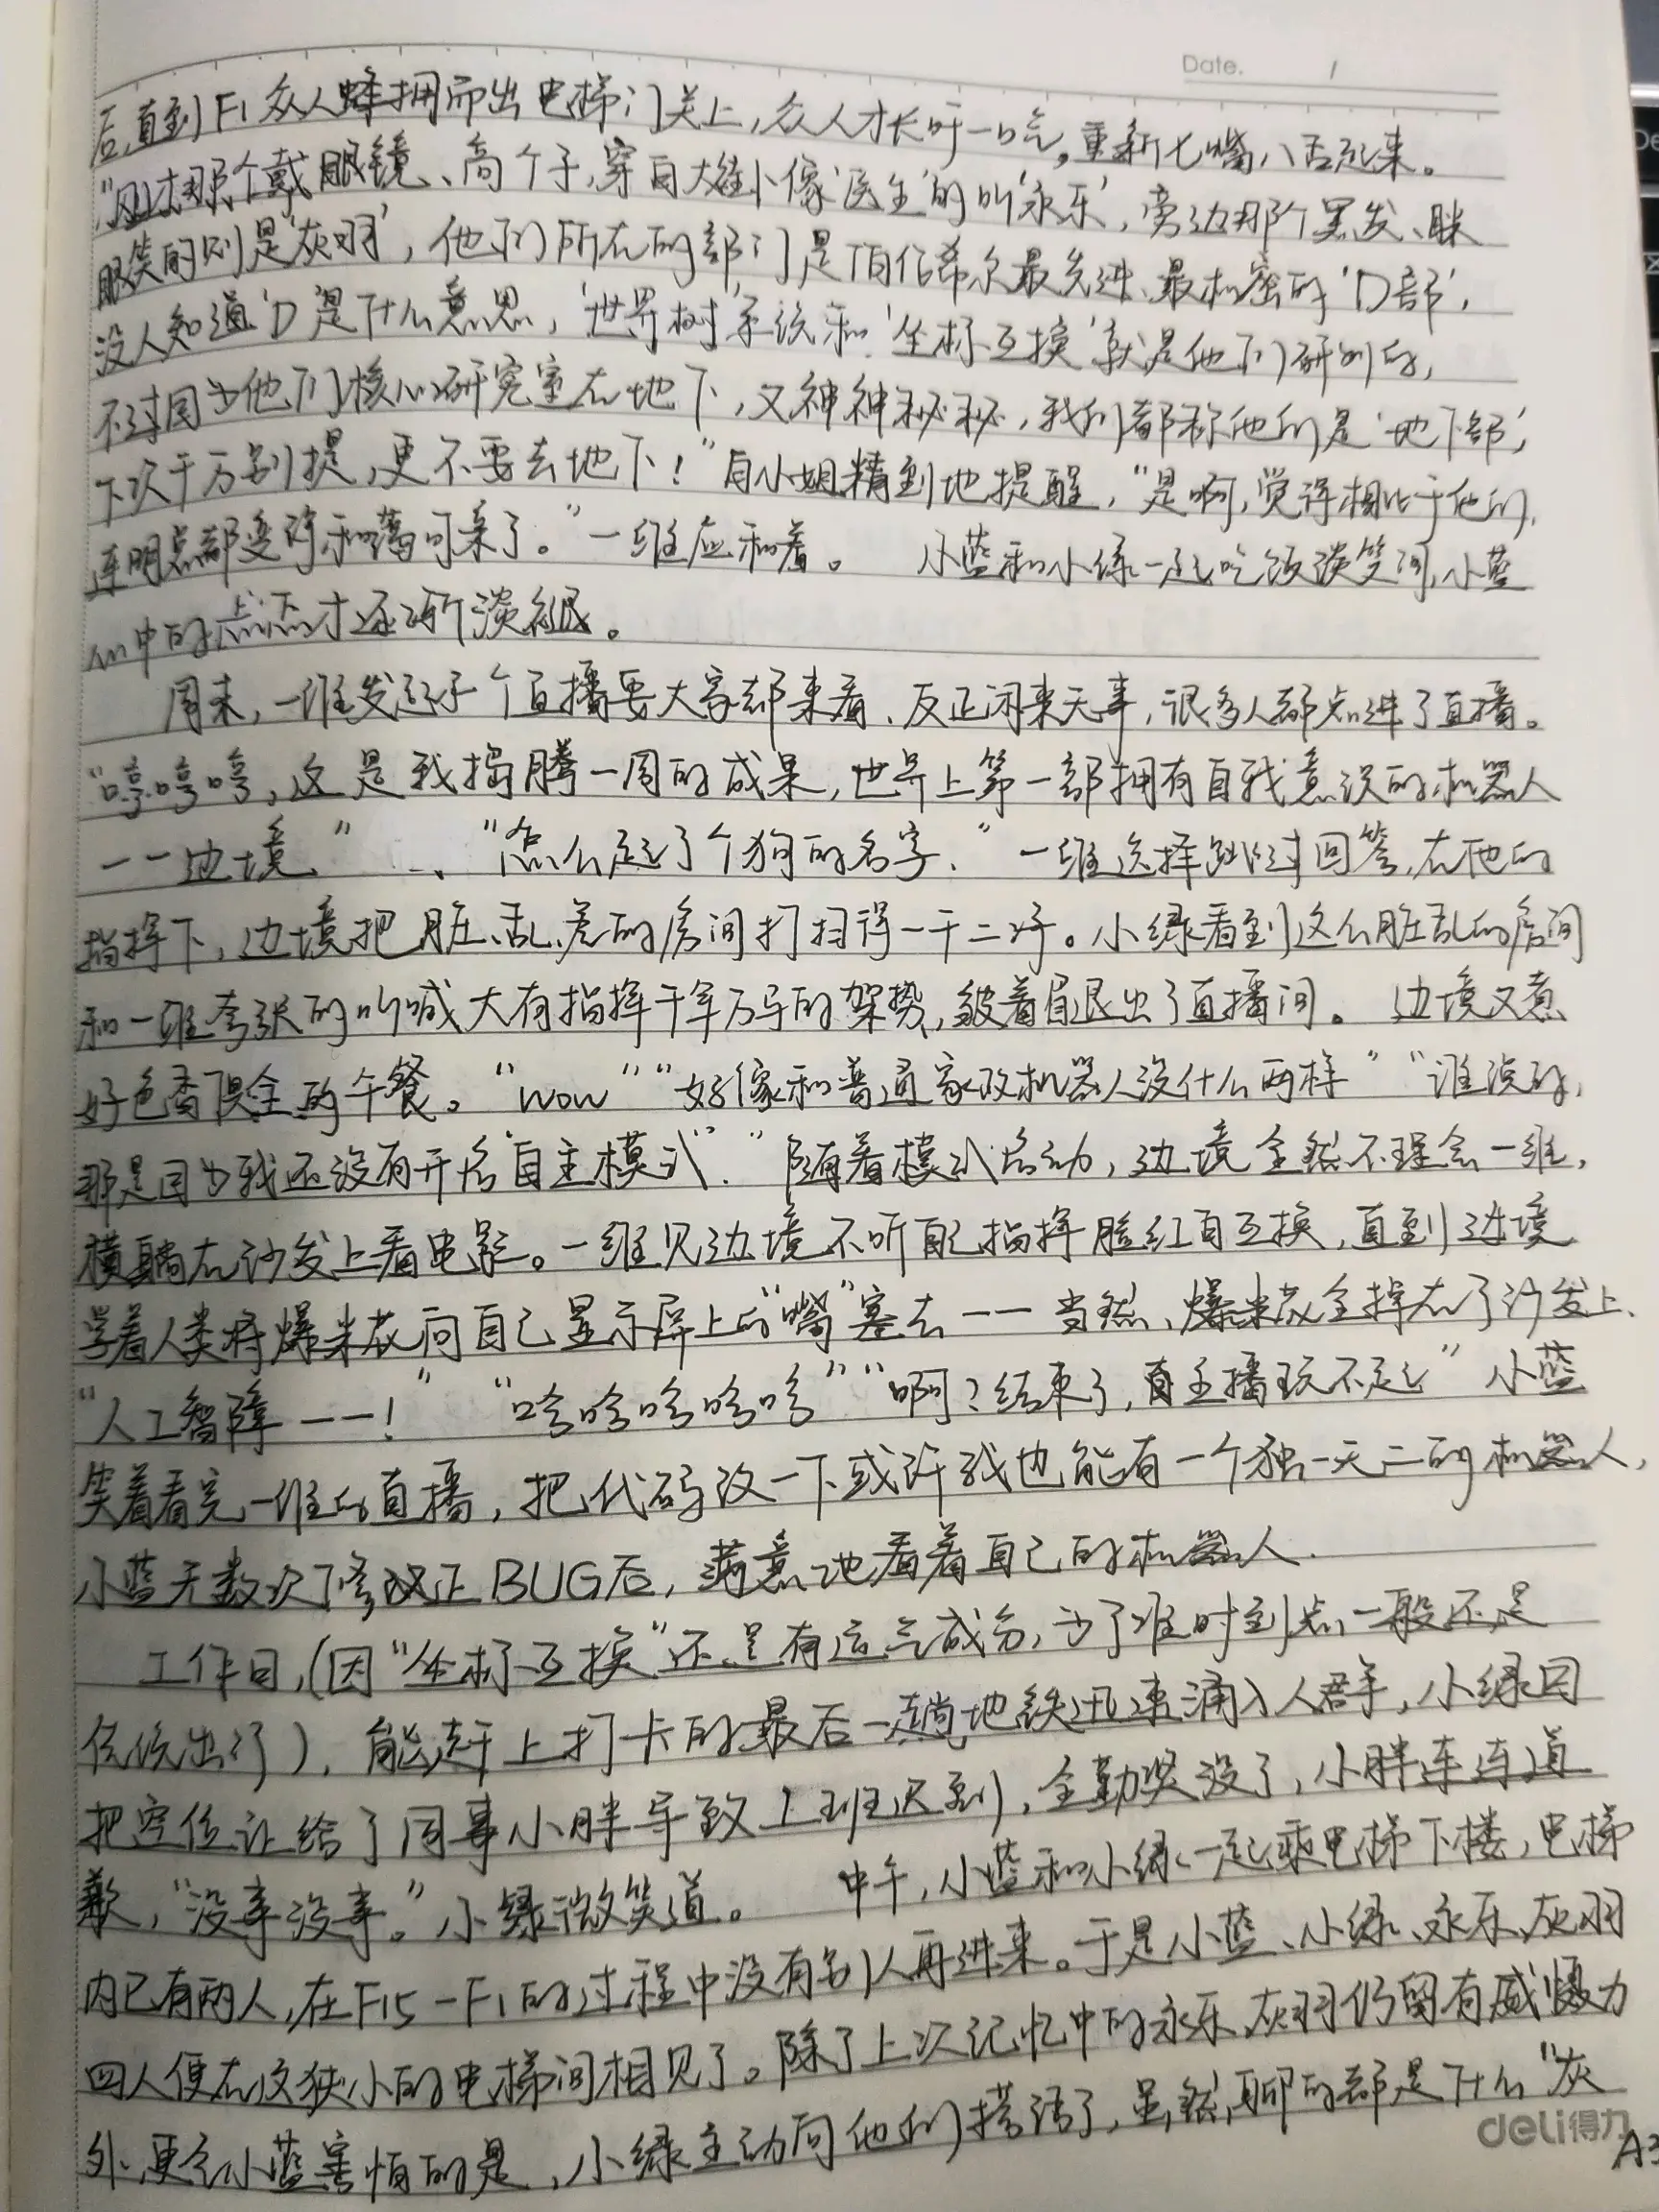 Date. /
后,直到F1众人蜂拥而出电梯门关上,众人才长吁一口气,重新七嘴八舌起来。
“刚才那个戴眼镜、高个子,穿白大褂小像‘医生’的叫‘永乐’,旁边那个黑发、眯
眼笑的则是‘灰羽’,他们所在的部门是伯希尔最先进、最机密的‘D部’,
没人知道‘D’是什么意思,‘世界树’系统和‘坐标互换’就是他们研制的,
不过因为他们核心研究室在地下,又神神秘秘,我们都称他们是‘地下部’,
下次千万别提,更不要去地下!”白小姐精到地提醒,“是啊,觉得相比于他们,
连明点都变得和蔼可亲了。”一维应和着。 小蓝和小绿一起吃饭谈笑间,小蓝
心中的忐忑才逐渐淡组。
周末,一维发起了个直播要大家都来看、反正闲来无事,很多人都点进了直播。
“哼哼哼,这是我捣腾一周的成果,世界上第一部拥有自我意识的机器人
——边境、” “怎么起了个狗的名字、”一维选择跳过回答,在他的
指挥下,边境把脏、乱、差的房间打扫得一干二净。小绿看到这么脏乱的房间
和一维夸张的叫喊大有指挥千军万马的架势,皱着眉退出了直播间。 边境又煮
好色香俱全的午餐。“wow”“好像和普通家政机器人没什么两样”“谁说的,
那是因为我还没有开启‘自主模式’.”随着模式启动,边境全然不理会一维,
横躺在沙发上看电影。一维见边境不听自己指挥脸红白互换,直到边境
学着人类将爆米花向自己显示屏上的“嘴”塞去——当然、爆米花全掉在了沙发上、
“人工智障——!” “哈哈哈哈哈”“啊?结束了,真主播玩不起”小蓝
笑着看完一维的直播,把代码改一下或许我也能有一个独一无二的机器人,
小蓝无数次修改正BUG后,满意地看着自己的机器人.
工作日,(因“坐标互换”还是有运气成分,为了准时到点一般还是
传统出行),能赶上打卡的最后一趟地铁迅速涌入人群,小绿因
把空位让给了同事小胖导致上班迟到,全勤奖没了,小胖连连道
歉,“没事没事。”小绿微笑道。 中午,小蓝和小绿一起乘电梯下楼,电梯
内已有两人,在F15-F1的过程中没有别人再进来。于是小蓝、小绿、永乐、灰羽
四人便在这狭小的电梯间相见了。除了上次记忆中的永乐、灰羽仍留有威慑力
外,更令小蓝害怕的是,小绿主动向他们搭话了,虽然聊的都是什么“灰
deli得力
A3